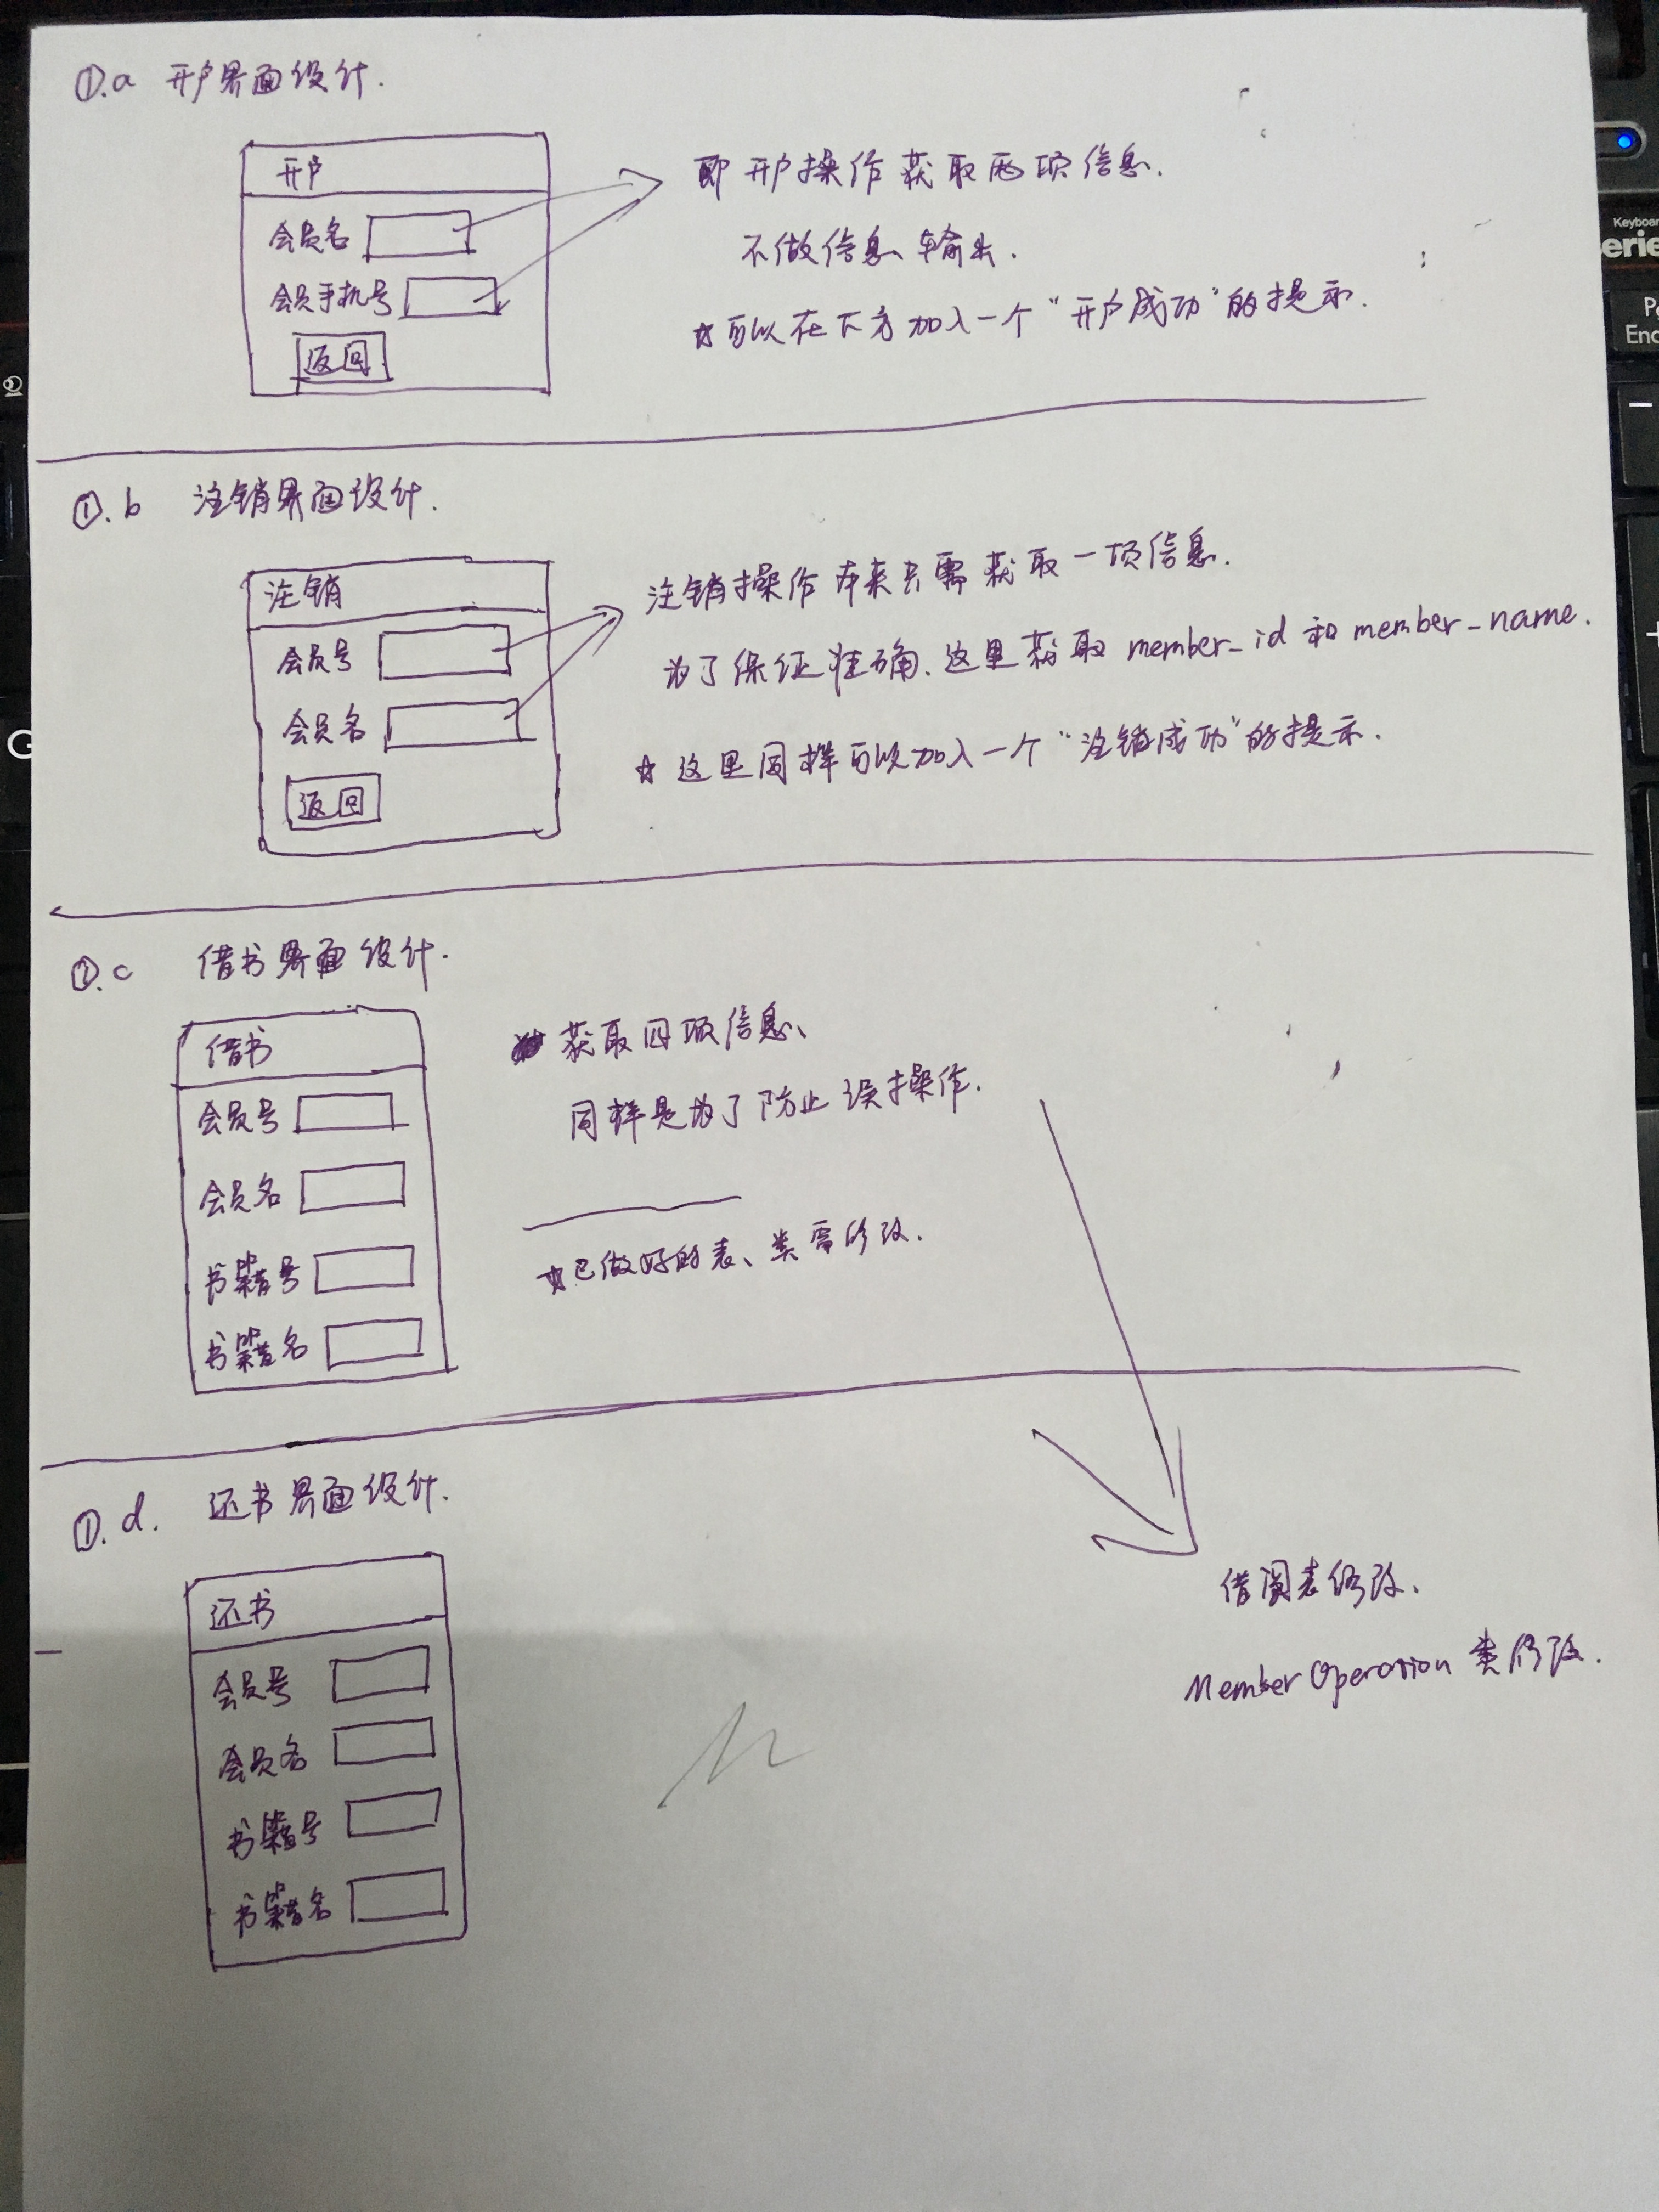 ①.a 开户界面设计.
开户
会员名
会员手机号
返回
即开户操作获取两项信息.
不做信息输出.
☆可以在下方加入一个“开户成功”的提示.
①.b 注销界面设计.
注销
会员号
会员名
返回
注销操作本来只需获取一项信息.
为了保证准确、这里获取 member_id 和 member_name.
☆ 这里同样可以加入一个“注销成功”的提示.
①.c 借书界面设计.
借书
会员号
会员名
书籍号
书籍名
获取四项信息、
同样是为了防止误操作.
☆已做好的表、类需修改.
①.d. 还书界面设计.
还书
会员号
会员名
书籍号
书籍名
借阅表修改、
MemberOperation 类修改.
Keyboar
erie
Enc
G